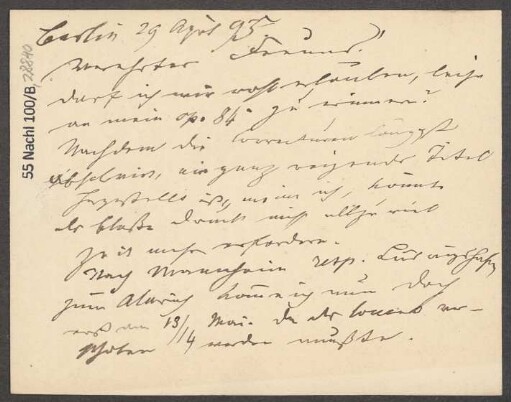 Berlin 29 April 95
Verehrter Freund!
darf ich mir wohl erlauben, leise
an mein op. 84 zu erinnern?
Nachdem die Correcturen längst
ein ganz reizender Titel
hergestellt ist, meine ich, könnte
der bloße Druck nicht allzu viel
Zeit mehr erfordern.
Nach Mannheim resp. Ludwigshafen
zum Alarich komme ich nun doch
erst am 13/14 Mai. da das Concert ver-
schoben werden mußte.
55 Nachl 100/B, 28810